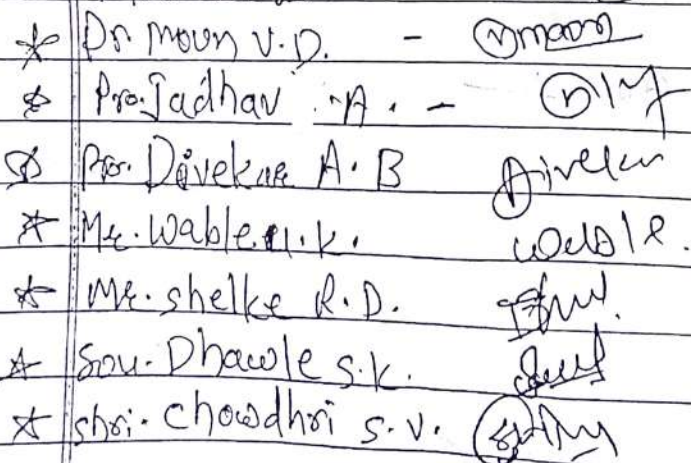 * Dr Moun V.D. -
* Pro. Jadhav A. -
* Pro. Divekar A. B Divekar
* Mr. Wable K. Wable.
* Mr. Shelke R.D.
* Sou. Dhawle S.K.
* Shri. Chowdhri S.V.